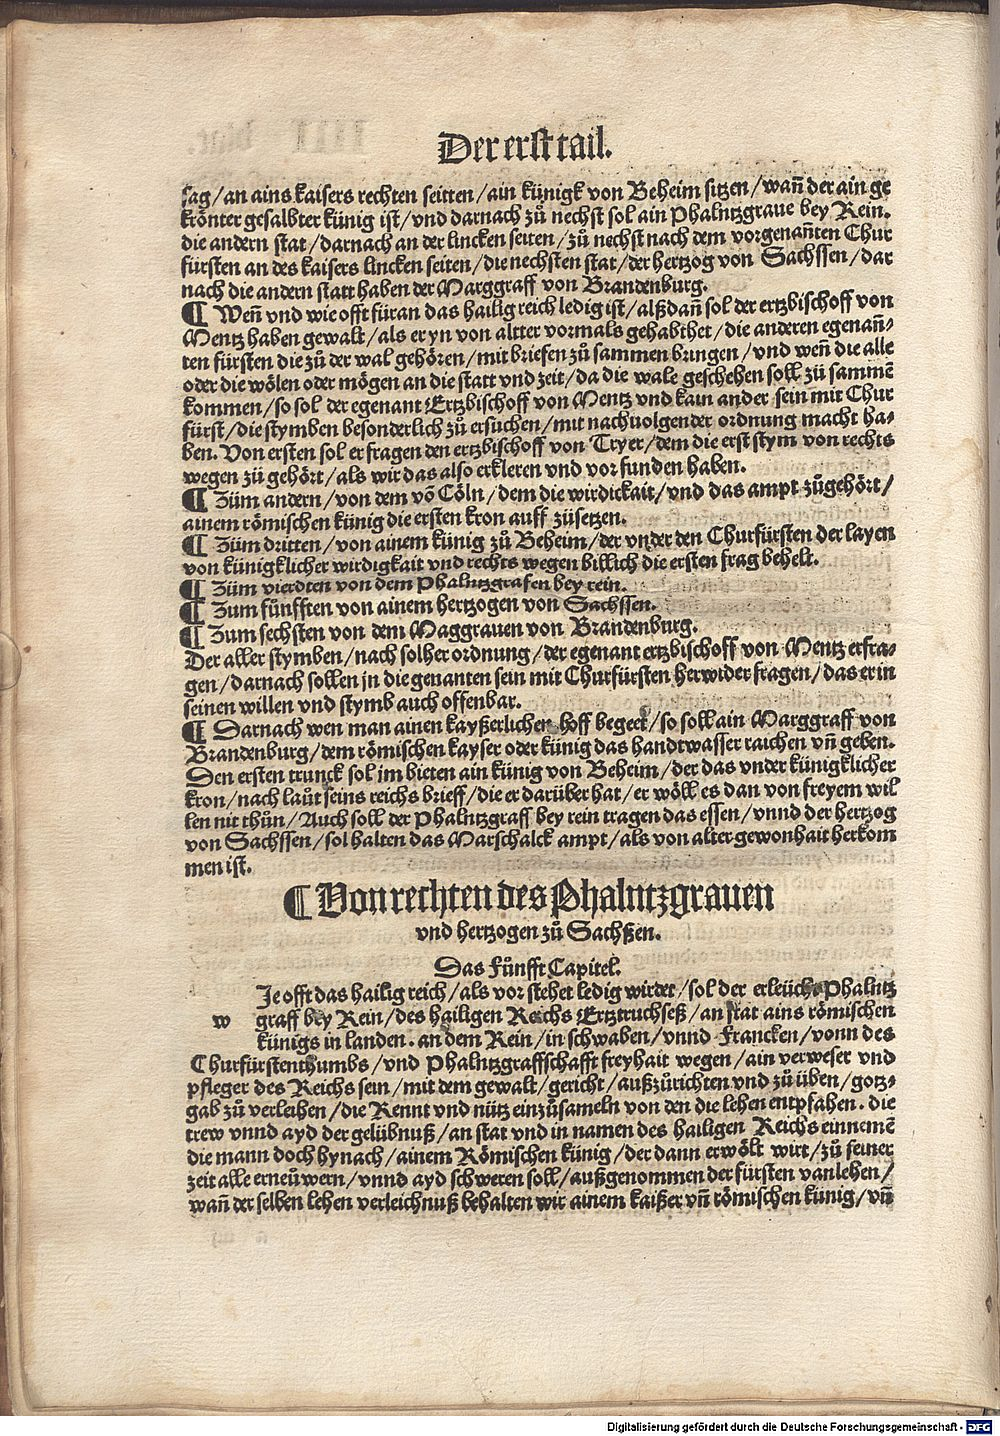 Der erst tail.
sag/an ains kaisers rechten seitten/ain künigk von Beheim sitzen/wañ der ain ge
krönter gesalbter künig ist/vnd darnach zů nechst sol ain Phalntzgraue bey Rein.
die andern stat/darnach an der lincken seiten/zů nechst nach dem vorgenañten Chur
fürsten an des kaisers lincken seiten/die nechsten stat/der hertzog von Sachssen/dar
nach die andern statt haben der Marggraff von Brandenburg.
¶ Weñ vnd wie offt füran das hailig reich ledig ist/alßdañ sol der ertzbischoff von
Mentz haben gewalt/als er yn von altter vormals gehabt het/die anderen egenañ-
ten fürsten die zů der wal gehören/mit briefen zů sammen bringen/vnd weñ die alle
oder die wölen oder mögen an die statt vnd zeit/da die wale geschehen soll zů sammē
kommen/so sol der egenant Ertzbischoff von Mentz vnd kain ander sein mit Chur
fürst/die stymben besonderlich zů ersuchen/mit nachuolgender ordnung macht ha-
ben. Von ersten sol er fragen den ertzbischoff von Tryer/dem die erst stym von rechts
wegen zů gehört/als wir das also erkleren vnd vor funden haben.
¶ Züm andern/von dem võ Cöln/dem die wirdickait/vnd das ampt zůgehört/
ainem römischen künig die ersten kron auff zůsetzen.
¶ Züm dritten/von ainem künig zů Beheim/der vnder den Churfürsten der layen
von künigklicher wirdigkait vnd rechts wegen billich die ersten frag behelt.
¶ Züm vierdten von dem Phalntzgrafen bey rein.
¶ Zum fünfften von ainem hertzogen von Sachssen.
¶ Zum sechsten von dem Maggrauen von Brandenburg.
Der aller stymben/nach solher ordnung/der egenant ertzbischoff von Mentz erfra-
gen/darnach sollen jn die genanten sein mit Churfürsten herwider fragen/das er in
seinen willen vnd stymb auch offenbar.
¶ Darnach wen man ainen kayßerlichen hoff begeet/so soll ain Marggraff von
Brandenburg/dem römischen kayser oder künig das handtwasser raichen vñ geben.
Den ersten trunck sol jm bieten ain künig von Beheim/der das vnder künigklicher
kron/nach laůt seins reichs brieff/die er darüber hat/er wöll es dan von freyem wil
len nit thün/Auch soll der Phalntzgraff bey rein tragen das essen/vnnd der hertzog
von Sachssen/sol halten das Marschalck ampt/als von alter gewonhait herkom
men ist.
¶ Von rechten des Phalntzgrauen
vnd hertzogen zů Sachßen.
Das Fůnfft Capitel.
Je offt das hailig reich/als vor stehet ledig wirdet/sol der erleücht Phalntz
w graff bey Rein/des hailigen Reichs Ertztruchseß/an stat ains römischen
künigs in landen. an dem Rein/in schwaben/vnnd Francken/vonn des
Churfürstenthumbs/vnd Phalntzgraffschafft freyhait wegen/ain verweser vnd
pfleger des Reichs sein/mit dem gewalt/gericht/außzůrichten vnd zů üben/gotz-
gab zů verleihen/die Rennt vnd nütz einzůsameln von den die lehen entpfahen. die
trew vnnd ayd der gelübnuß/an stat vnd in namen des hailigen Reichs einnemē
die mann doch hynach/ainem Römischen künig/der dann erwölt wirt/zů seiner
zeit alle erneüwern/vnnd ayd schweren soll/außgenommen der fürsten vanlehen/
wañ der selben lehen verleichnuß behalten wir ainem kaißer vñ römischen künig/vñ
Digitalisierung gefördert durch die Deutsche Forschungsgemeinschaft - DFG